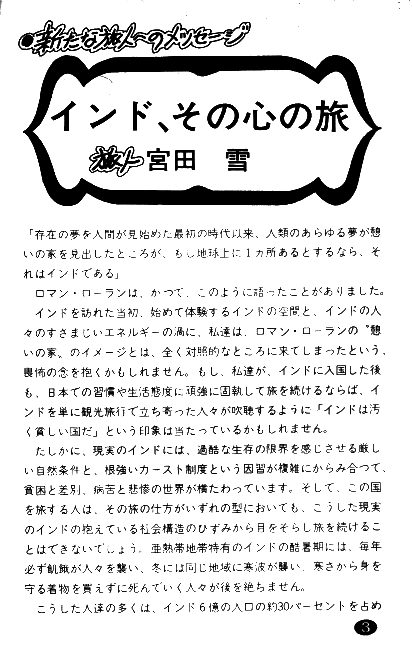 ●新たな旅人へのメッセージ
インド、その心の旅
旅人 宮田 雪
「存在の夢を人間が見始めた最初の時代以来、人類のあらゆる夢が憩
いの家を見出したところが、もし地球上に1ヵ所あるとするなら、そ
れはインドである」
ロマン・ローランは、かつて、このように語ったことがありました。
インドを訪れた当初、始めて体験するインドの空間と、インドの人
々のすさまじいエネルギーの渦に、私達は、ロマン・ローランの〝憩
いの家〟のイメージとは、全く対照的なところに来てしまったという、
畏怖の念を抱くかもしれません。もし、私達が、インドに入国した後
も、日本での習慣や生活態度に頑強に固執して旅を続けるならば、イ
ンドを単に観光旅行で立ち寄った人々が吹聴するように「インドは汚
く貧しい国だ」という印象は当たっているかもしれません。
たしかに、現実のインドには、過酷な生存の限界を感じさせる厳し
い自然条件と、根強いカースト制度という因習が複雑にからみ合って、
貧困と差別、病苦と悲惨の世界が横たわっています。そして、この国
を旅する人は、その旅の仕方がいずれの型においても、こうした現実
のインドの抱えている社会構造のひずみから目をそらし旅を続けるこ
とはできないでしょう。亜熱帯地帯特有のインドの酷暑期には、毎年
必ず飢餓が人々を襲い、冬には同じ地域に寒波が襲い、寒さから身を
守る着物を買えずに死んでいく人々が後を絶ちません。
こうした人達の多くは、インド6億の人口の約30パーセントを占め
3